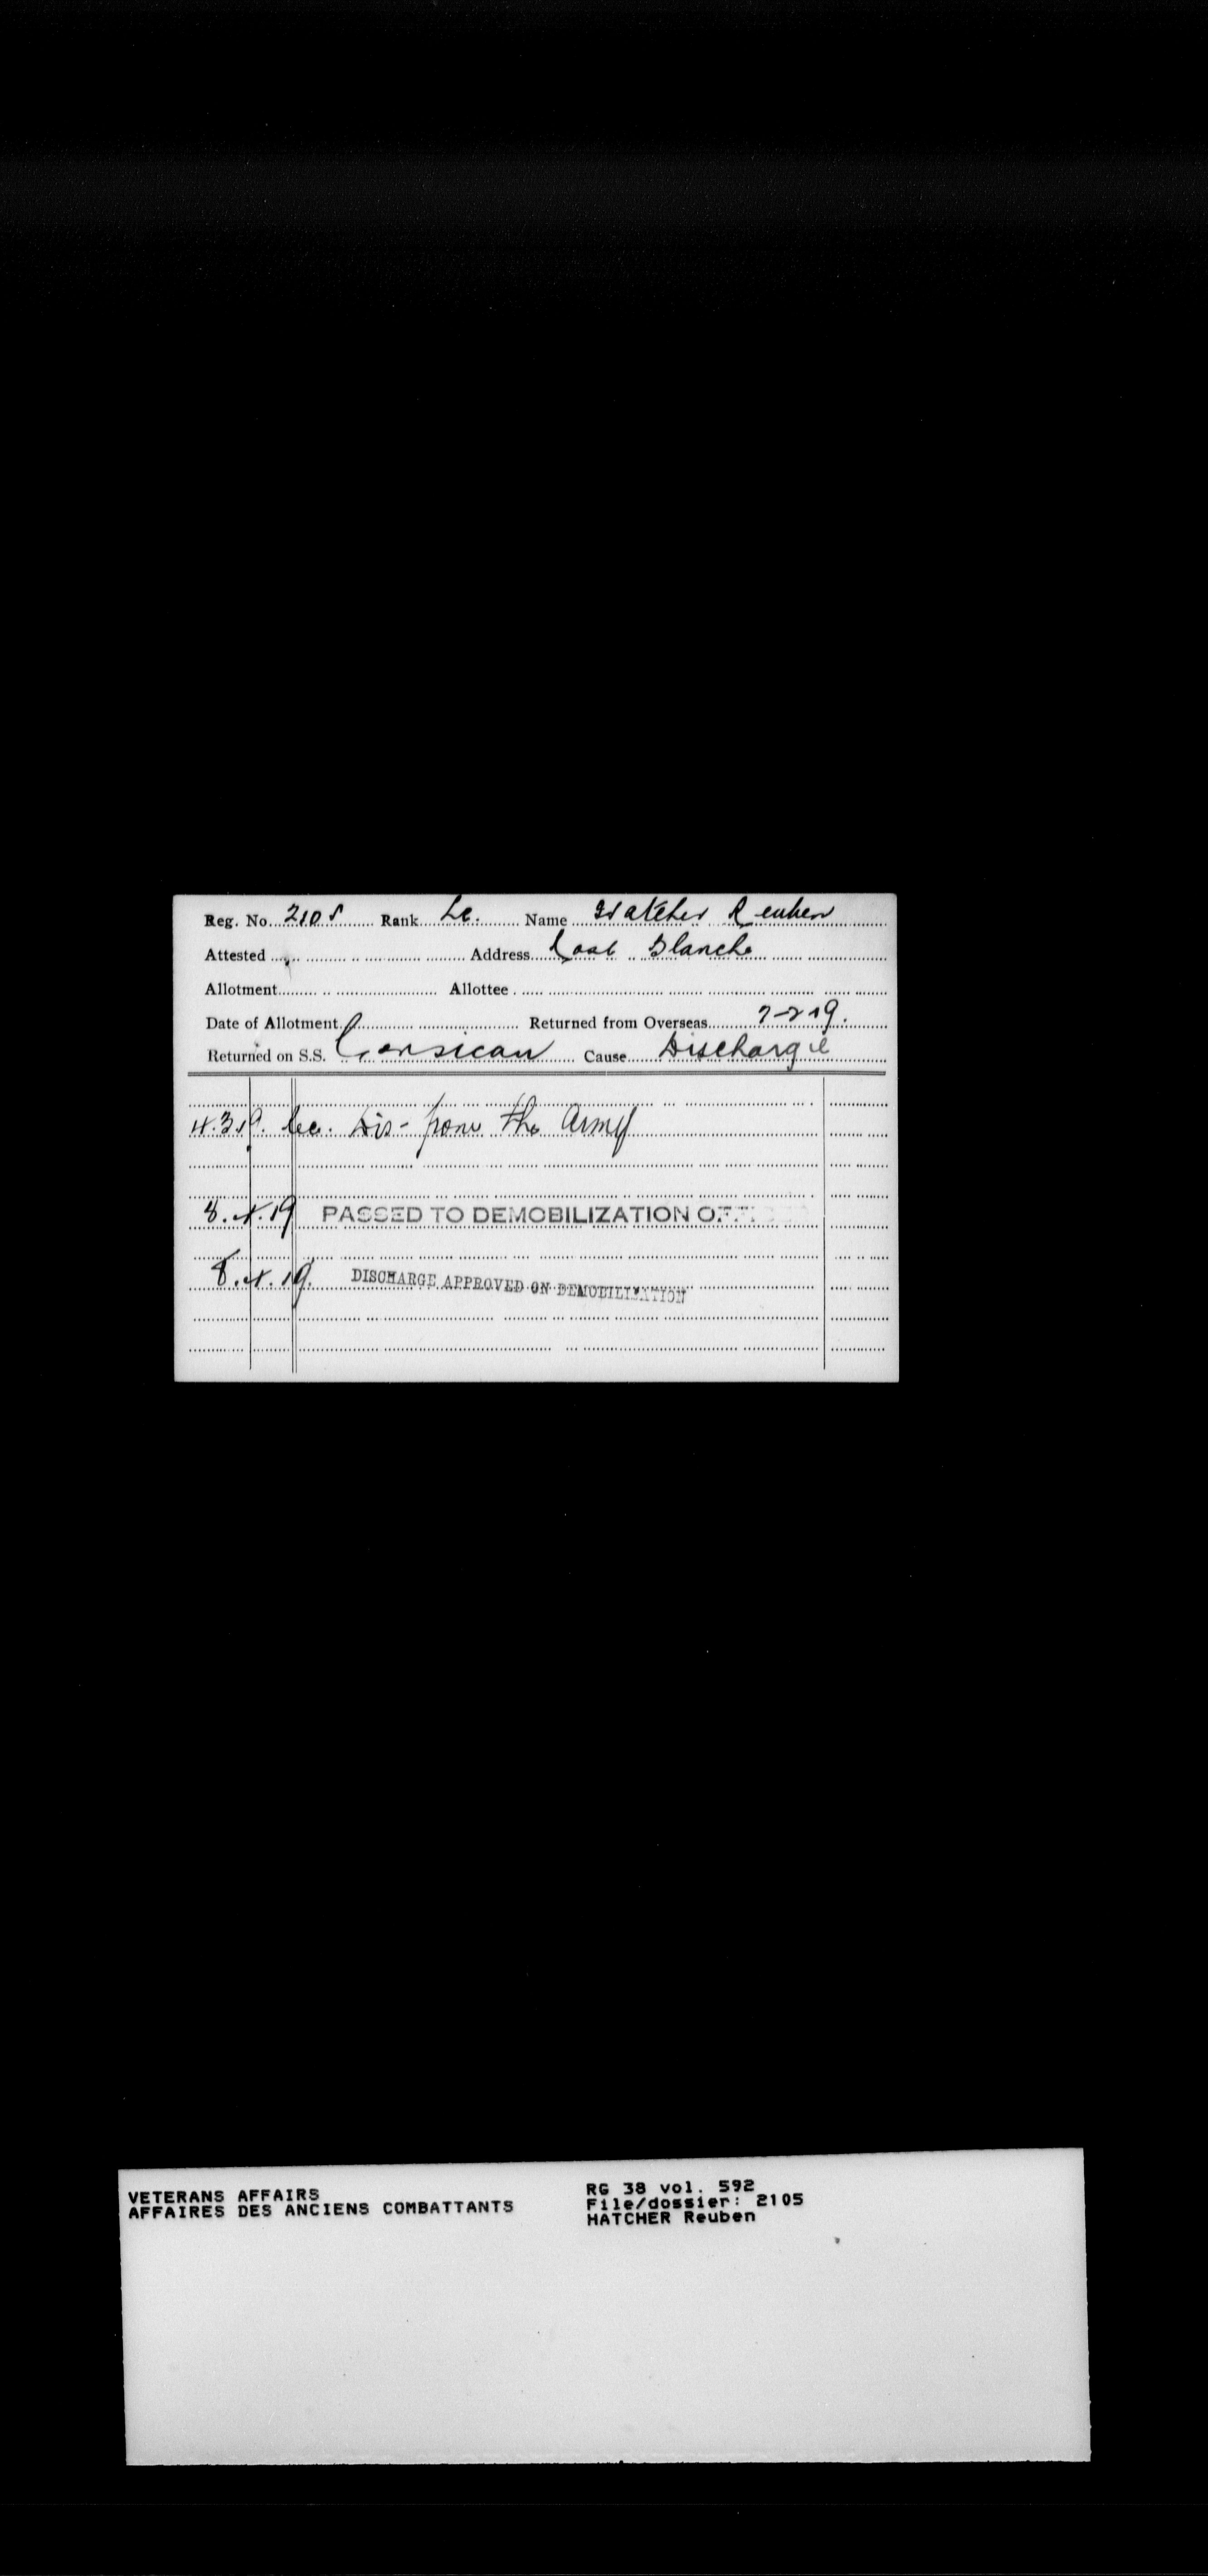 Reg. No. 2105 Rank Lc. Name Hatcher Reuben
Attested Address Coal Blanche
Allotment Allottee
Date of Allotment Returned from Overseas 7-2-19.
Returned on S.S. Corsican Cause Discharge
4.3.19. Dis- from the Army
8.4.19 PASSED TO DEMOBILIZATION OFF
8.4.19. DISCHARGE APPROVED ON DEMOBILIZATION
VETERANS AFFAIRS
AFFAIRES DES ANCIENS COMBATTANTS
RG 38 vol. 592
File/dossier: 2105
HATCHER Reuben